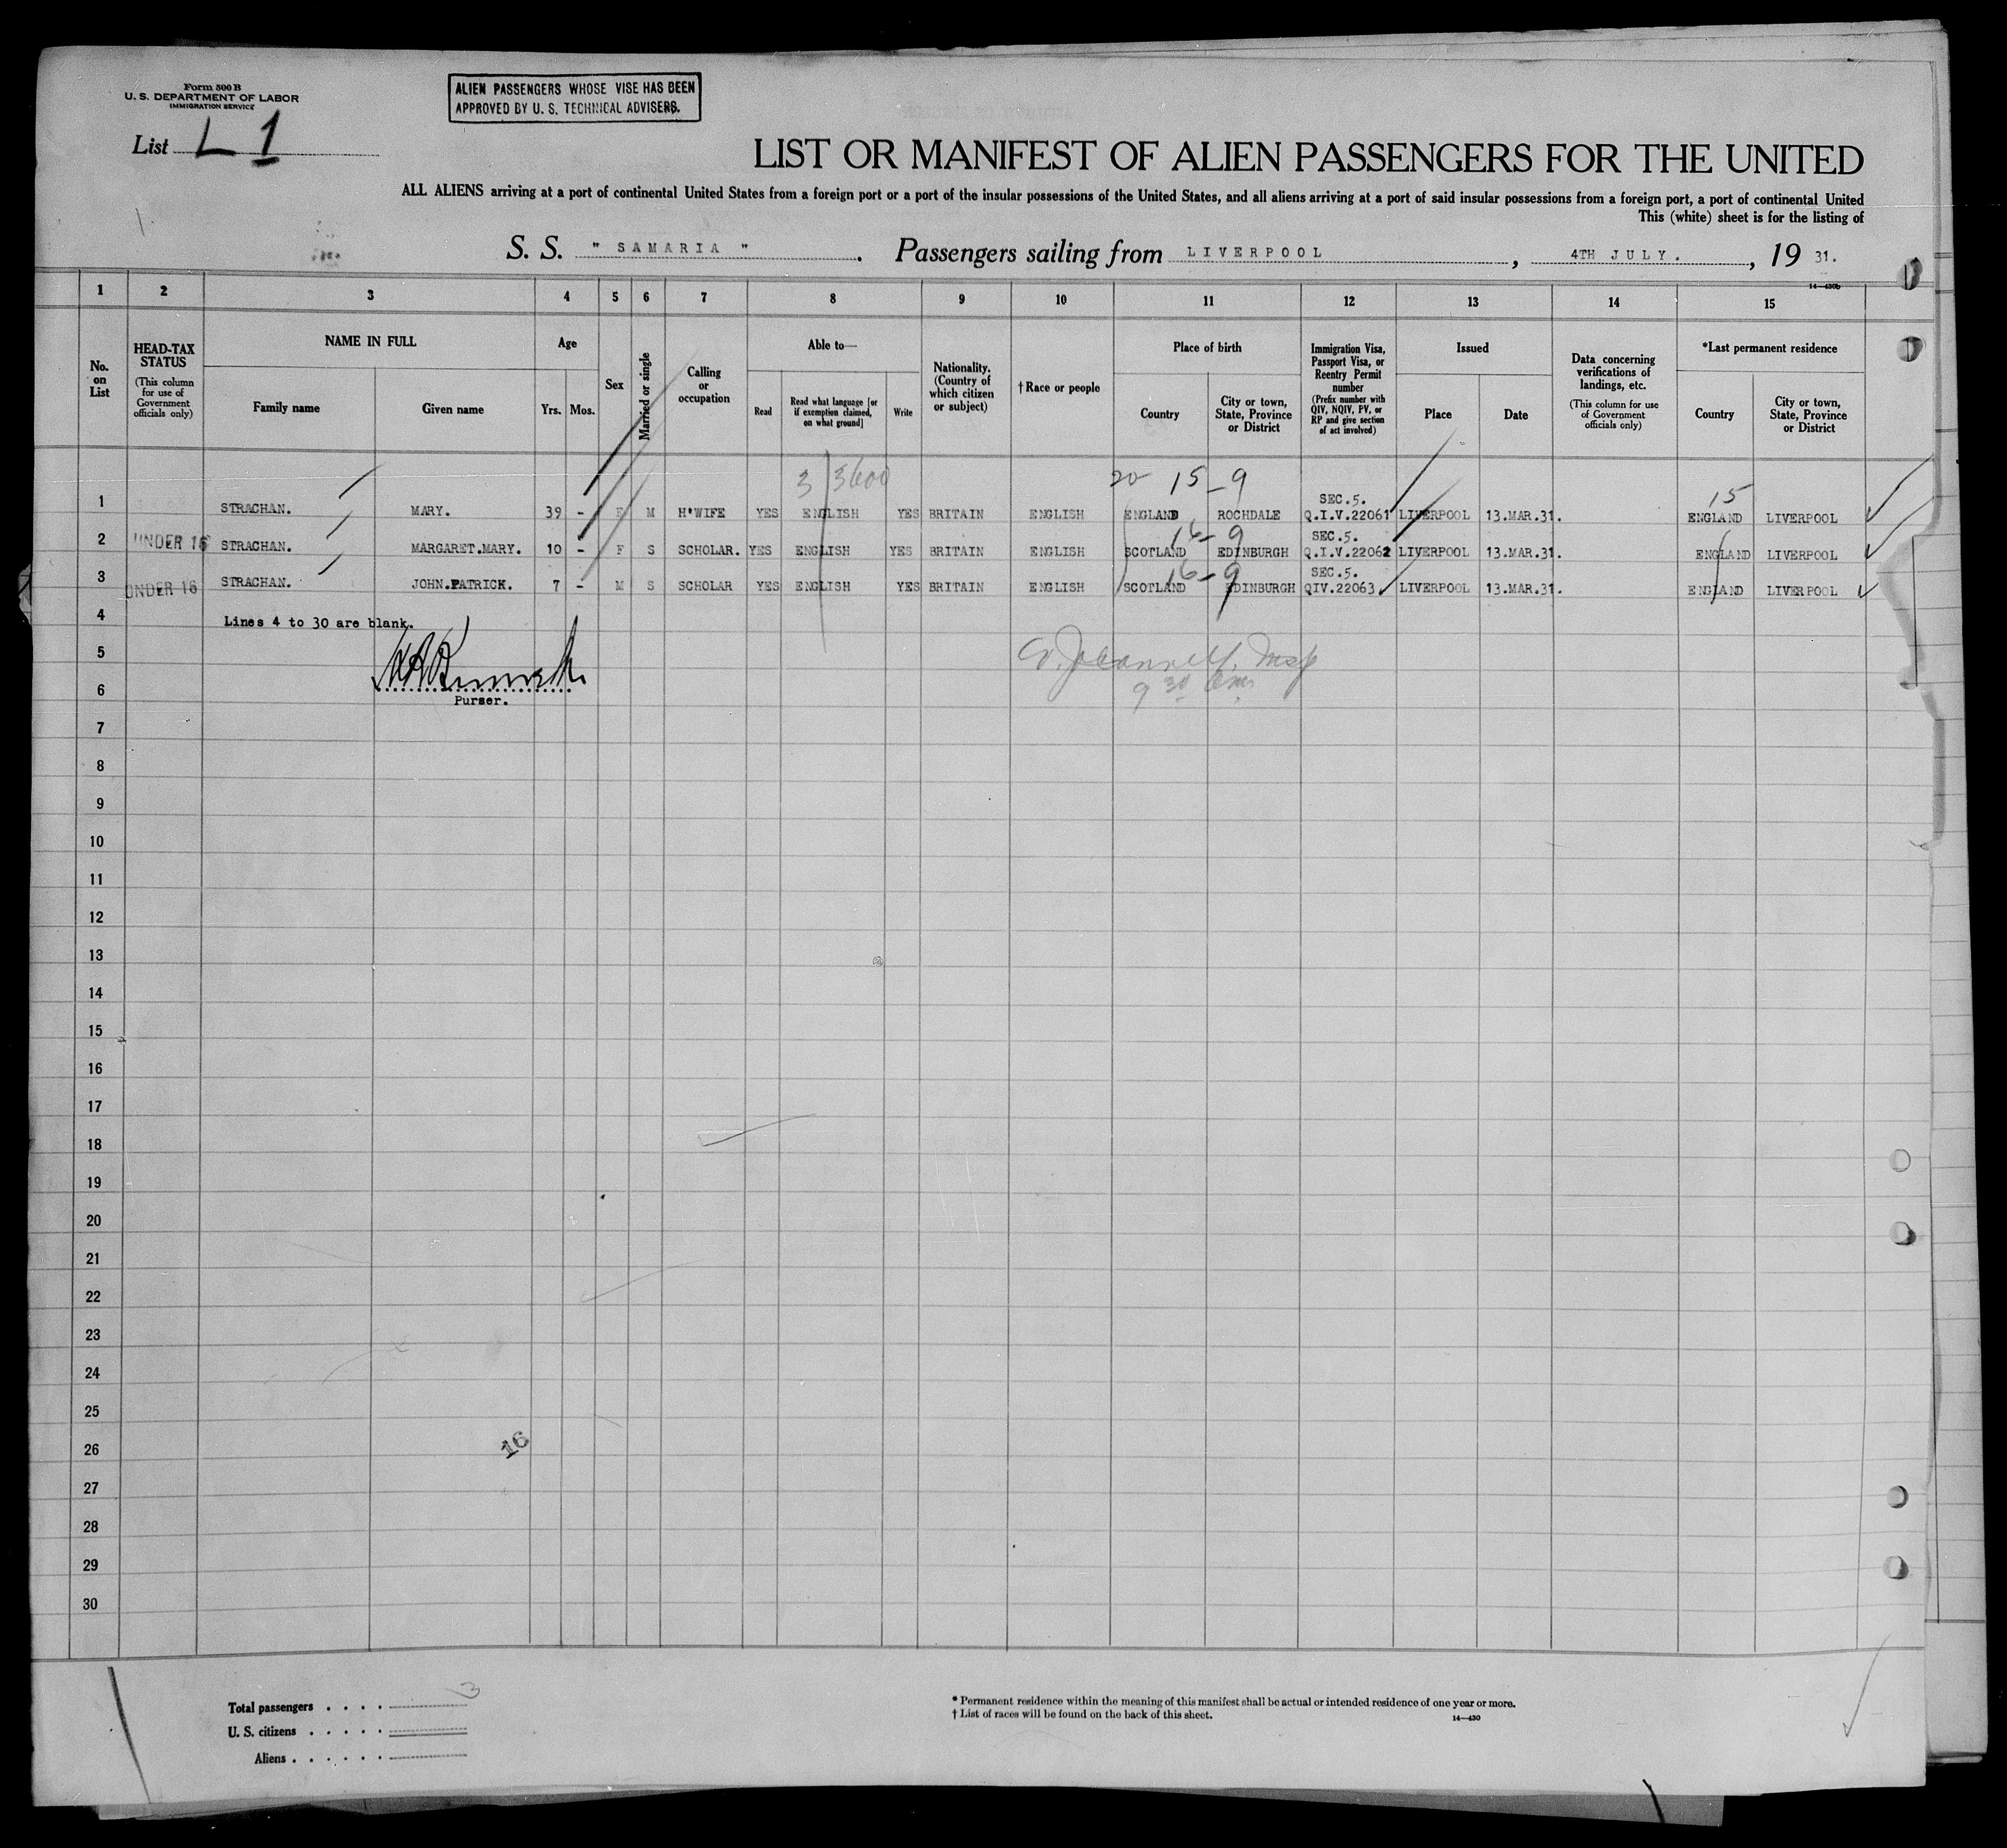 Form 500 B
U. S. DEPARTMENT OF LABOR
IMMIGRATION SERVICE
ALIEN PASSENGERS WHOSE VISE HAS BEEN
APPROVED BY U. S. TECHNICAL ADVISERS.
List L 1
LIST OR MANIFEST OF ALIEN PASSENGERS FOR THE UNITED
ALL ALIENS arriving at a port of continental United States from a foreign port or a port of the insular possessions of the United States, and all aliens arriving at a port of said insular possessions from a foreign port, a port of continental United
This (white) sheet is for the listing of
S. S. " SAMARIA ". Passengers sailing from LIVERPOOL, 4TH JULY., 19 31.
14—430b
1 2 3 4 5 6 7 8 9 10 11 12 13 14 15
No. on List
HEAD-TAX STATUS
(This column for use of Government officials only)
NAME IN FULL
Family name
Given name
Age
Yrs. Mos.
Sex
Married or single
Calling or occupation
Able to—
Read
Read what language [or if exemption claimed, on what ground]
Write
Nationality. (Country of which citizen or subject)
†Race or people
Place of birth
Country
City or town, State, Province or District
Immigration Visa, Passport Visa, or Reentry Permit number
(Prefix number with QIV, NQIV, PV, or RP and give section of act involved)
Issued
Place
Date
Data concerning verifications of landings, etc.
(This column for use of Government officials only)
*Last permanent residence
Country
City or town, State, Province or District
3 3600
20 15-9
15
SEC.5.
1 STRACHAN. MARY. 39 - F M H'WIFE YES ENGLISH YES BRITAIN ENGLISH ENGLAND ROCHDALE Q.I.V.22061 LIVERPOOL 13.MAR.31. ENGLAND LIVERPOOL
16-9
SEC.5.
2 UNDER 16 STRACHAN. MARGARET.MARY. 10 - F S SCHOLAR. YES ENGLISH YES BRITAIN ENGLISH SCOTLAND EDINBURGH Q.I.V.22062 LIVERPOOL 13.MAR.31. ENGLAND LIVERPOOL
16-9
SEC.5.
3 UNDER 16 STRACHAN. JOHN.PATRICK. 7 - M S SCHOLAR YES ENGLISH YES BRITAIN ENGLISH SCOTLAND EDINBURGH QIV.22063 LIVERPOOL 13.MAR.31. ENGLAND LIVERPOOL
4 Lines 4 to 30 are blank.
5
6
9 30
Purser.
7
8
9
10
11
12
13
14
15
16
17
18
19
20
21
22
23
24
25
26
16
27
28
29
30
Total passengers . . . . 3
U. S. citizens . . . . .
Aliens . . . . . .
* Permanent residence within the meaning of this manifest shall be actual or intended residence of one year or more.
† List of races will be found on the back of this sheet.
14—430